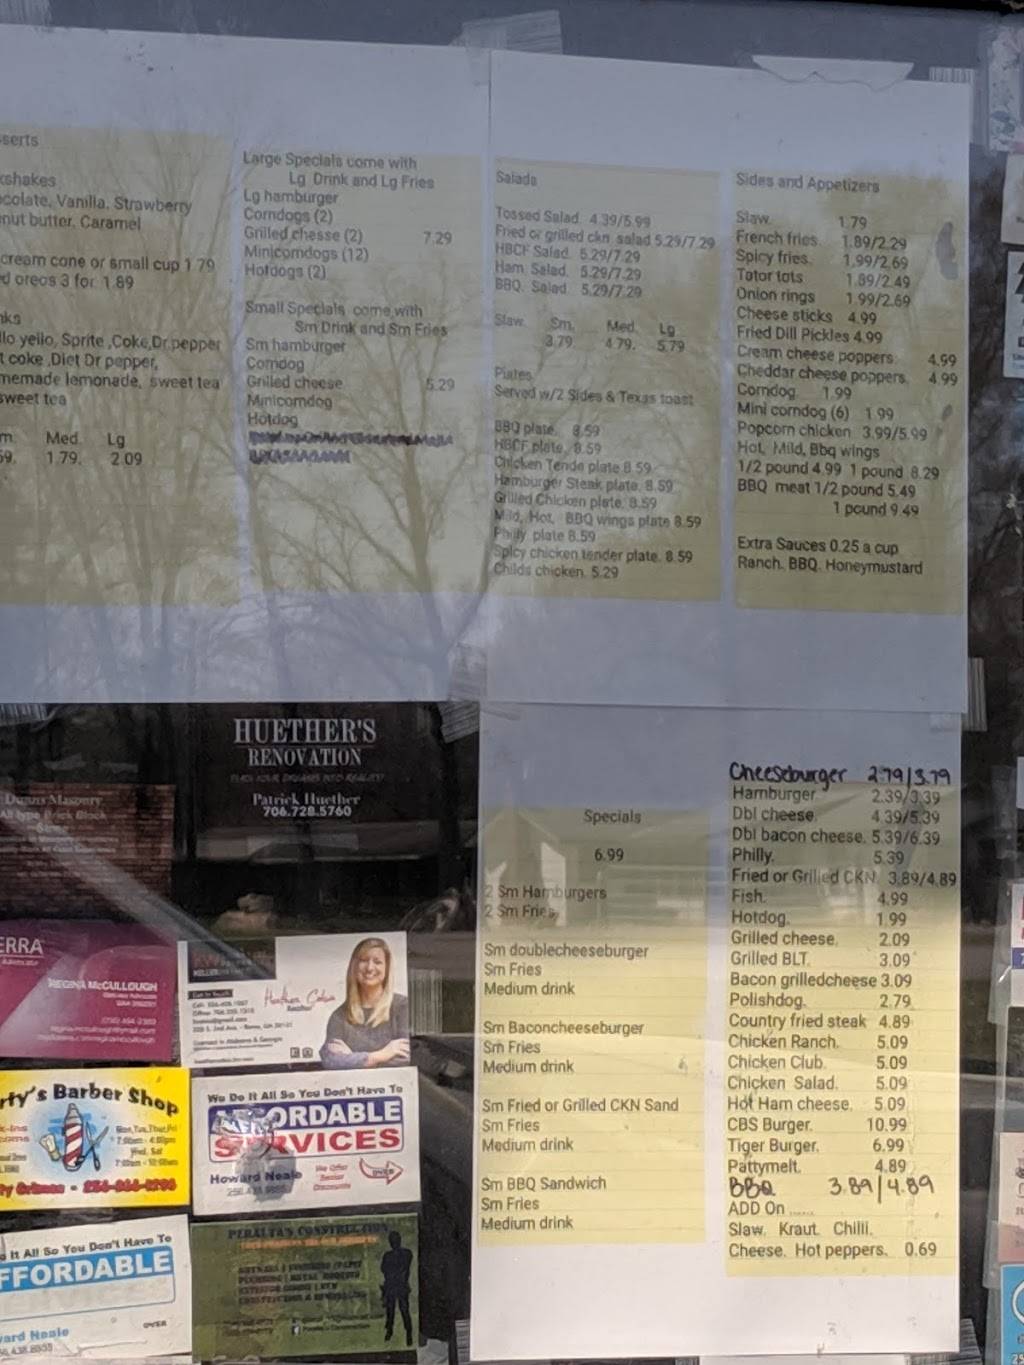 serts
kshakes
colate, Vanilla, Strawberry
nut butter, Caramel
cream cone or small cup 1.79
d oreos 3 for 1.89
ks
llo yello, Sprite ,Coke,Dr.pepper
t coke ,Diet Dr pepper,
memade lemonade, sweet tea
sweet tea
m. Med. Lg
59. 1.79. 2.09
Large Specials come with
Lg Drink and Lg Fries
Lg hamburger
Corndogs (2)
Grilled chesse (2) 7.29
Minicorndogs (12)
Hotdogs (2)
Small Specials come with
Sm Drink and Sm Fries
Sm hamburger
Corndog
Grilled cheese 5.29
Minicorndog
Hotdog
Salads
Tossed Salad. 4.39/5.99
Fried or grilled ckn salad 5.29/7.29
HBCF Salad. 5.29/7.29
Ham Salad. 5.29/7.29
BBQ. Salad. 5.29/7.29
Slaw. Sm. Med. Lg
3.79. 4.79. 5.79
Plates.
Served w/2 Sides & Texas toast
BBQ plate. 8.59
HBCF plate. 8.59
Chicken Tende plate 8.59
Hamburger Steak plate. 8.59
Grilled Chicken plate. 8.59
Mild, Hot, BBQ wings plate 8.59
Philly plate 8.59
Spicy chicken tender plate. 8.59
Childs chicken. 5.29
Sides and Appetizers
Slaw. 1.79
French fries. 1.89/2.29
Spicy fries. 1.99/2.69
Tator tots 1.89/2.49
Onion rings 1.99/2.69
Cheese sticks 4.99
Fried Dill Pickles 4.99
Cream cheese poppers. 4.99
Cheddar cheese poppers. 4.99
Corndog. 1.99
Mini corndog (6) 1.99
Popcorn chicken 3.99/5.99
Hot, Mild, Bbq wings
1/2 pound 4.99 1 pound 8.29
BBQ meat 1/2 pound 5.49
1 pound 9.49
Extra Sauces 0.25 a cup
Ranch. BBQ. Honeymustard
HUETHER'S
RENOVATION
TURN YOUR DREAMS INTO REALITY!
Patrick Huether
706.728.5760
Dunns Masonry
All type Brick Block
Stone
ERRA
REGINA McCULLOUGH
Heather
Realtor
rty's Barber Shop
We Do It All So You Don't Have To
AFFORDABLE
SERVICES
Howard Neale
We Offer
Senior
Discounts
OVER
o It All So You Don't Have To
FFORDABLE
SERVICES
ward Neale
OVER
PERALTA'S CONSTRUCTION
Specials
6.99
2 Sm Hamburgers
2 Sm Fries,
Sm doublecheeseburger
Sm Fries
Medium drink
Sm Baconcheeseburger
Sm Fries
Medium drink
Sm Fried or Grilled CKN Sand
Sm Fries
Medium drink
Sm BBQ Sandwich
Sm Fries
Medium drink
Cheeseburger 2.79/3.79
Hamburger 2.39/3.39
Dbl cheese. 4.39/5.39
Dbl bacon cheese. 5.39/6.39
Philly. 5.39
Fried or Grilled CKN 3.89/4.89
Fish. 4.99
Hotdog. 1.99
Grilled cheese. 2.09
Grilled BLT. 3.09
Bacon grilledcheese 3.09
Polishdog. 2.79
Country fried steak 4.89
Chicken Ranch. 5.09
Chicken Club. 5.09
Chicken Salad. 5.09
Hot Ham cheese. 5.09
CBS Burger. 10.99
Tiger Burger. 6.99
Pattymelt. 4.89
BBQ 3.89/4.89
ADD On ......
Slaw. Kraut. Chilli.
Cheese. Hot peppers. 0.69